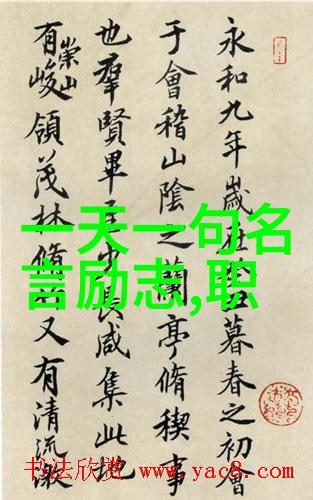 永和九年歲在暮春之初會
于會稽山陰之蘭亭脩稧事
也羣賢畢至少長咸集此地
有崇山峻領茂林脩竹又有清流激
一天一句名
言励志,职
书法欣赏 www.yac8.com